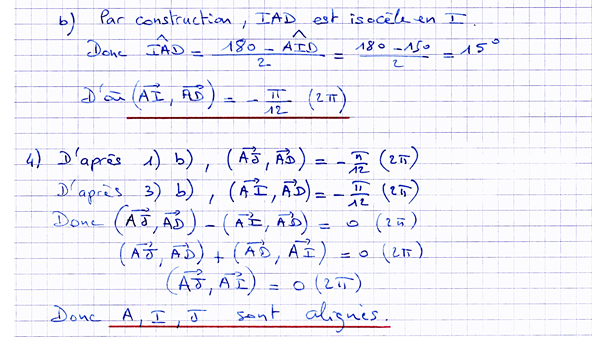 b) Par construction, IAD est isocèle en I.
Donc \widehat{IAD} = \frac{180 - \widehat{AID}}{2} = \frac{180 - 150}{2} = 15°
D'où (\vec{AI}, \vec{AD}) = -\frac{π}{12} (2π)
4) D'après 1) b), (\vec{AJ}, \vec{AD}) = -\frac{π}{12} (2π)
D'après 3) b), (\vec{AI}, \vec{AD}) = -\frac{π}{12} (2π)
Donc (\vec{AJ}, \vec{AD}) - (\vec{AI}, \vec{AD}) = 0 (2π)
(\vec{AJ}, \vec{AD}) + (\vec{AD}, \vec{AI}) = 0 (2π)
(\vec{AJ}, \vec{AI}) = 0 (2π)
Donc A, I, J sont alignés.